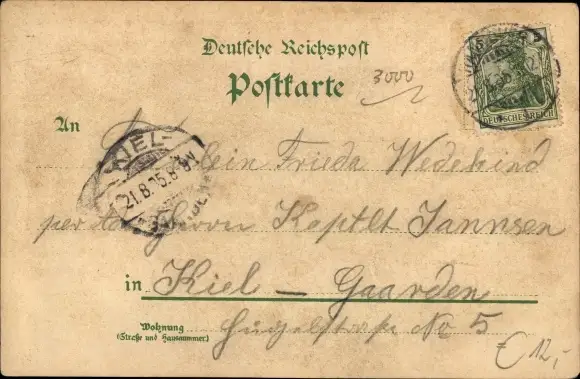 Deutsche Reichspost
Postkarte
3000
DEUTSCHES REICH
An
Fräulein Frieda Wedekind
KIEL-
21.8.05.8-9V
per Adr Herrn Kaptlt Jannsen
in Kiel - Gaarden
Wohnung
(Straße und Hausnummer)
Hügelstraße No 5
€ 12,-